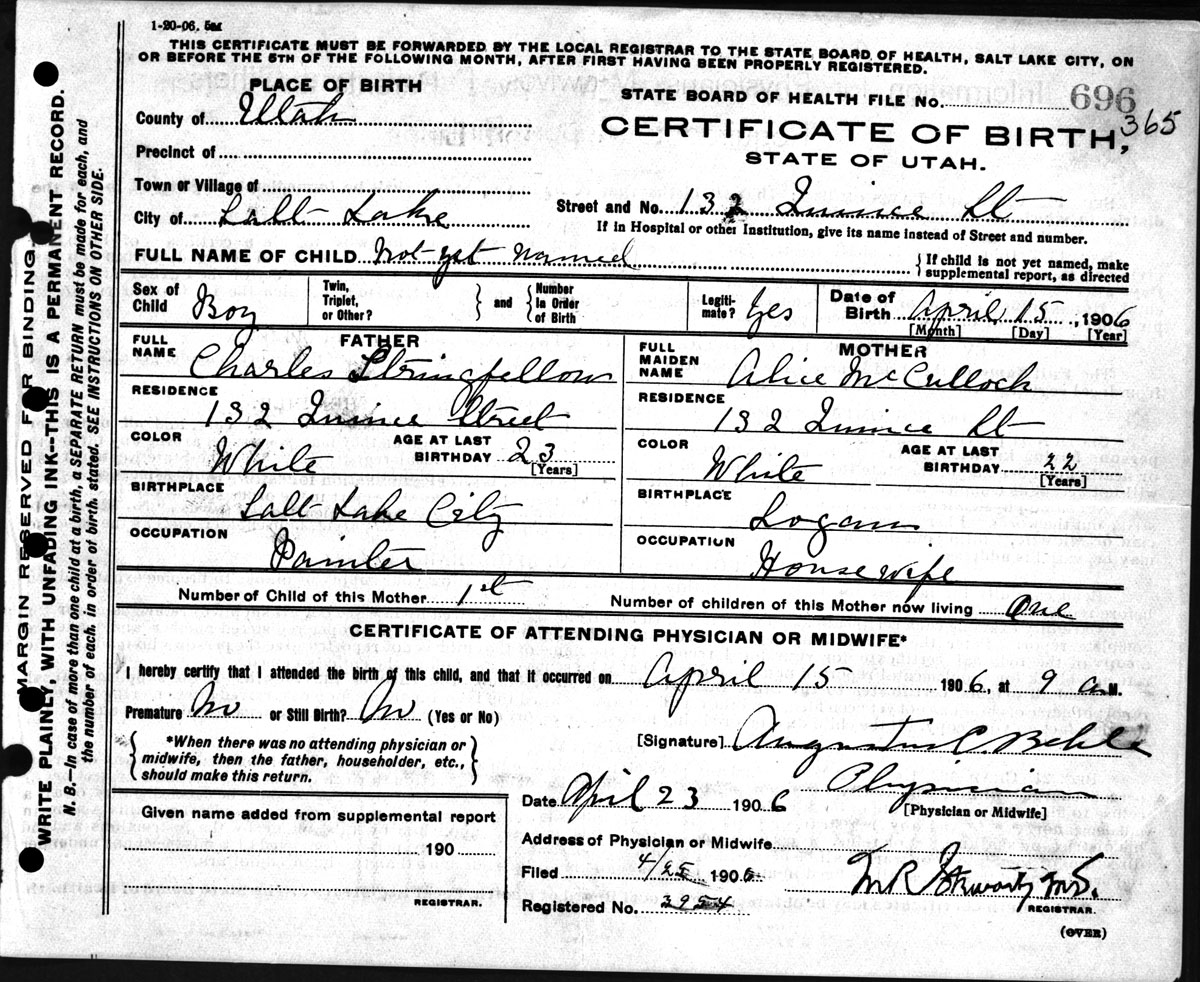 1-20-06. 5M
THIS CERTIFICATE MUST BE FORWARDED BY THE LOCAL REGISTRAR TO THE STATE BOARD OF HEALTH, SALT LAKE CITY, ON
OR BEFORE THE 5TH OF THE FOLLOWING MONTH, AFTER FIRST HAVING BEEN PROPERLY REGISTERED.
PLACE OF BIRTH
STATE BOARD OF HEALTH FILE No. 696
County of Utah
CERTIFICATE OF BIRTH, 365
Precinct of
STATE OF UTAH.
Town or Village of
City of Salt Lake
Street and No. 132 Quince St
If in Hospital or other Institution, give its name instead of Street and number.
FULL NAME OF CHILD Not yet named
{If child is not yet named, make
supplemental report, as directed
Sex of Child Boy
Twin, Triplet, or Other?
and
Number in Order of Birth
Legiti-mate? Yes
Date of Birth April 15, 1906
[Month] [Day] [Year]
FATHER
FULL NAME Charles Stringfellow
RESIDENCE
132 Quince Street
COLOR White
AGE AT LAST BIRTHDAY 23 [Years]
BIRTHPLACE
Salt Lake City
OCCUPATION
Painter
MOTHER
FULL MAIDEN NAME Alice McCulloch
RESIDENCE
132 Quince St
COLOR White
AGE AT LAST BIRTHDAY 22 [Years]
BIRTHPLACE
Logan
OCCUPATION
Housewife
Number of Child of this Mother 1st
Number of children of this Mother now living One
CERTIFICATE OF ATTENDING PHYSICIAN OR MIDWIFE*
I hereby certify that I attended the birth of this child, and that it occurred on April 15 1906, at 9 a.M.
Premature No or Still Birth? No (Yes or No)
{*When there was no attending physician or
midwife, then the father, householder, etc.,
should make this return.}
[Signature] Augustus C. Behle
Physician
[Physician or Midwife]
Date April 23 1906
Given name added from supplemental report
190
REGISTRAR.
Address of Physician or Midwife
Filed 4/25 1906
Registered No. 3954
REGISTRAR.
(OVER)
MARGIN RESERVED FOR BINDING
WRITE PLAINLY, WITH UNFADING INK--THIS IS A PERMANENT RECORD.
N. B.—In case of more than one child at a birth, a SEPARATE RETURN must be made for each, and
the number of each, in order of birth, stated. SEE INSTRUCTIONS ON OTHER SIDE.